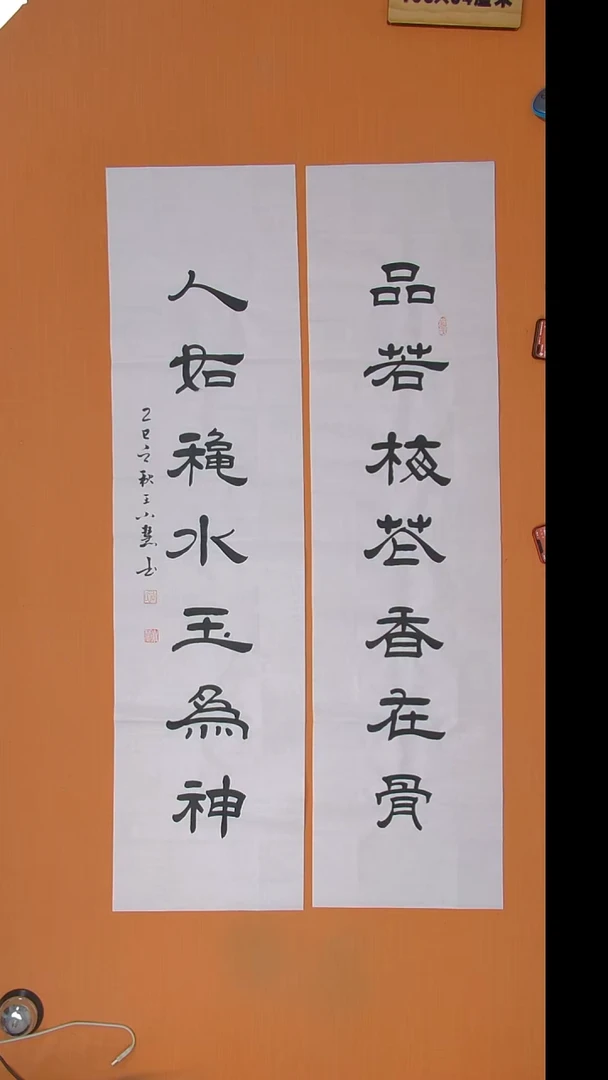 品若梅花香在骨
人如穐水玉為神
乙巳立秋王小慧书